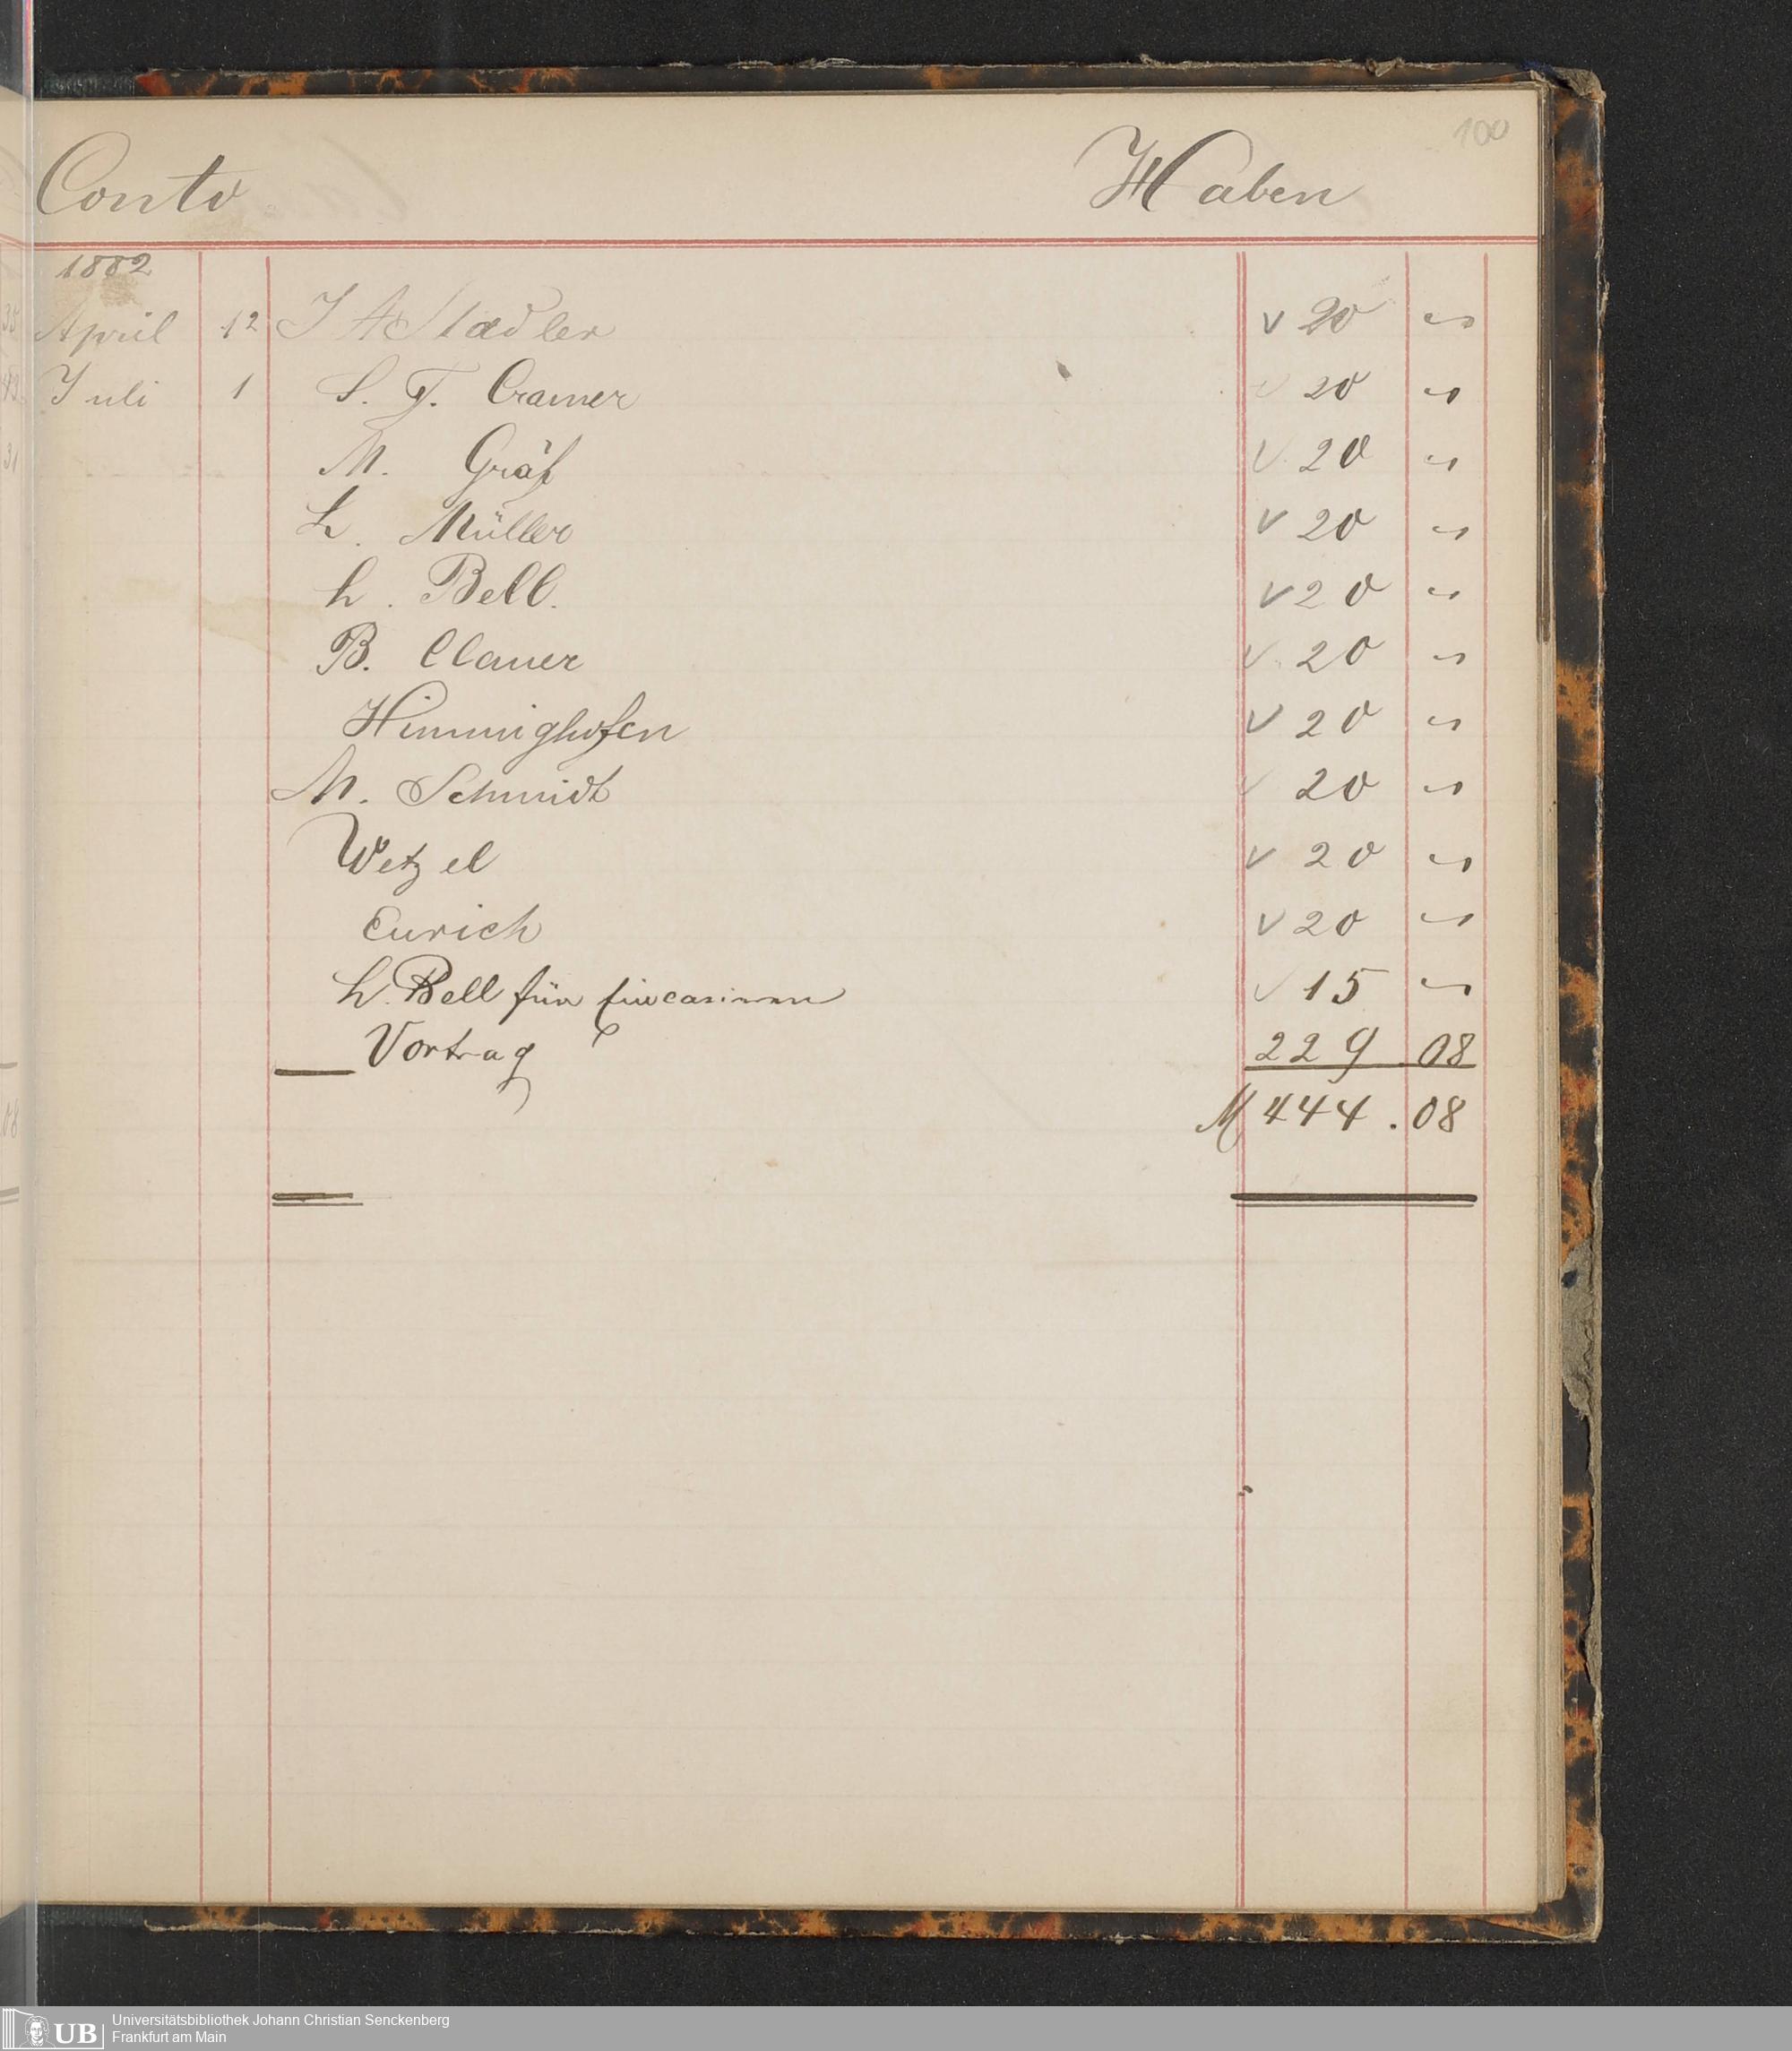 100
Conto Haben
1882
April 12 J A Stadler v 20 "
Juli 1 S. F. Cramer v 20 "
M. Gräf v 20 "
L. Müller v 20 "
L. Bell. v 20 "
B. Clauer v 20 "
Himmighofen v 20 "
M. Schmidt v 20 "
Wetzel v 20 "
Eurich v 20 "
L. Bell für v 15 "
Vortrag 229.08
M 444.08
UB
Universitätsbibliothek Johann Christian Senckenberg
Frankfurt am Main